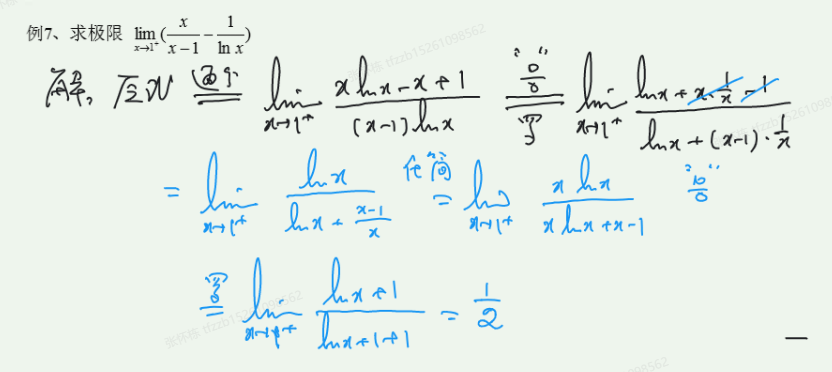 例7、求极限 lim_{x→1⁺} (x/(x−1) − 1/ln x)
解: 原式 通分= lim_{x→1⁺} (x ln x − x + 1)/((x−1) ln x) "0/0" 洛= lim_{x→1⁺} (ln x + x·1/x − 1)/(ln x + (x−1)·1/x)
= lim_{x→1⁺} ln x/(ln x + (x−1)/x) 化简= lim_{x→1⁺} x ln x/(x ln x + x − 1) "0/0"
= lim_{x→1⁺} (ln x + 1)/(ln x + 1 + 1) = 1/2